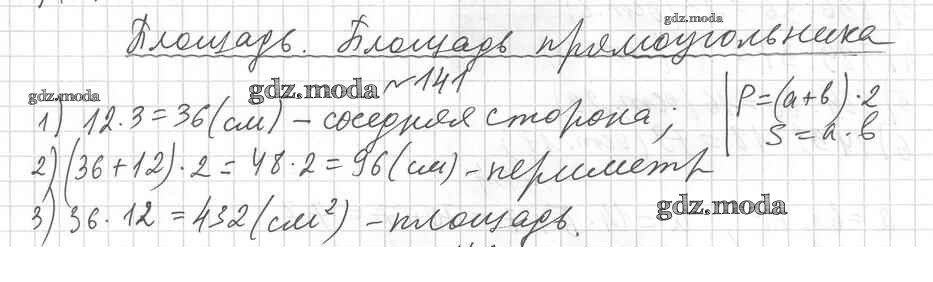 gdz.moda
Площадь. Площадь прямоугольника
gdz.moda gdz.moda №141
1) 12·3=36(см) – соседняя сторона; P=(a+b)·2
S=a·b
2) (36+12)·2=48·2=96(см) - периметр
3) 36·12=432(см²) – площадь. gdz.moda